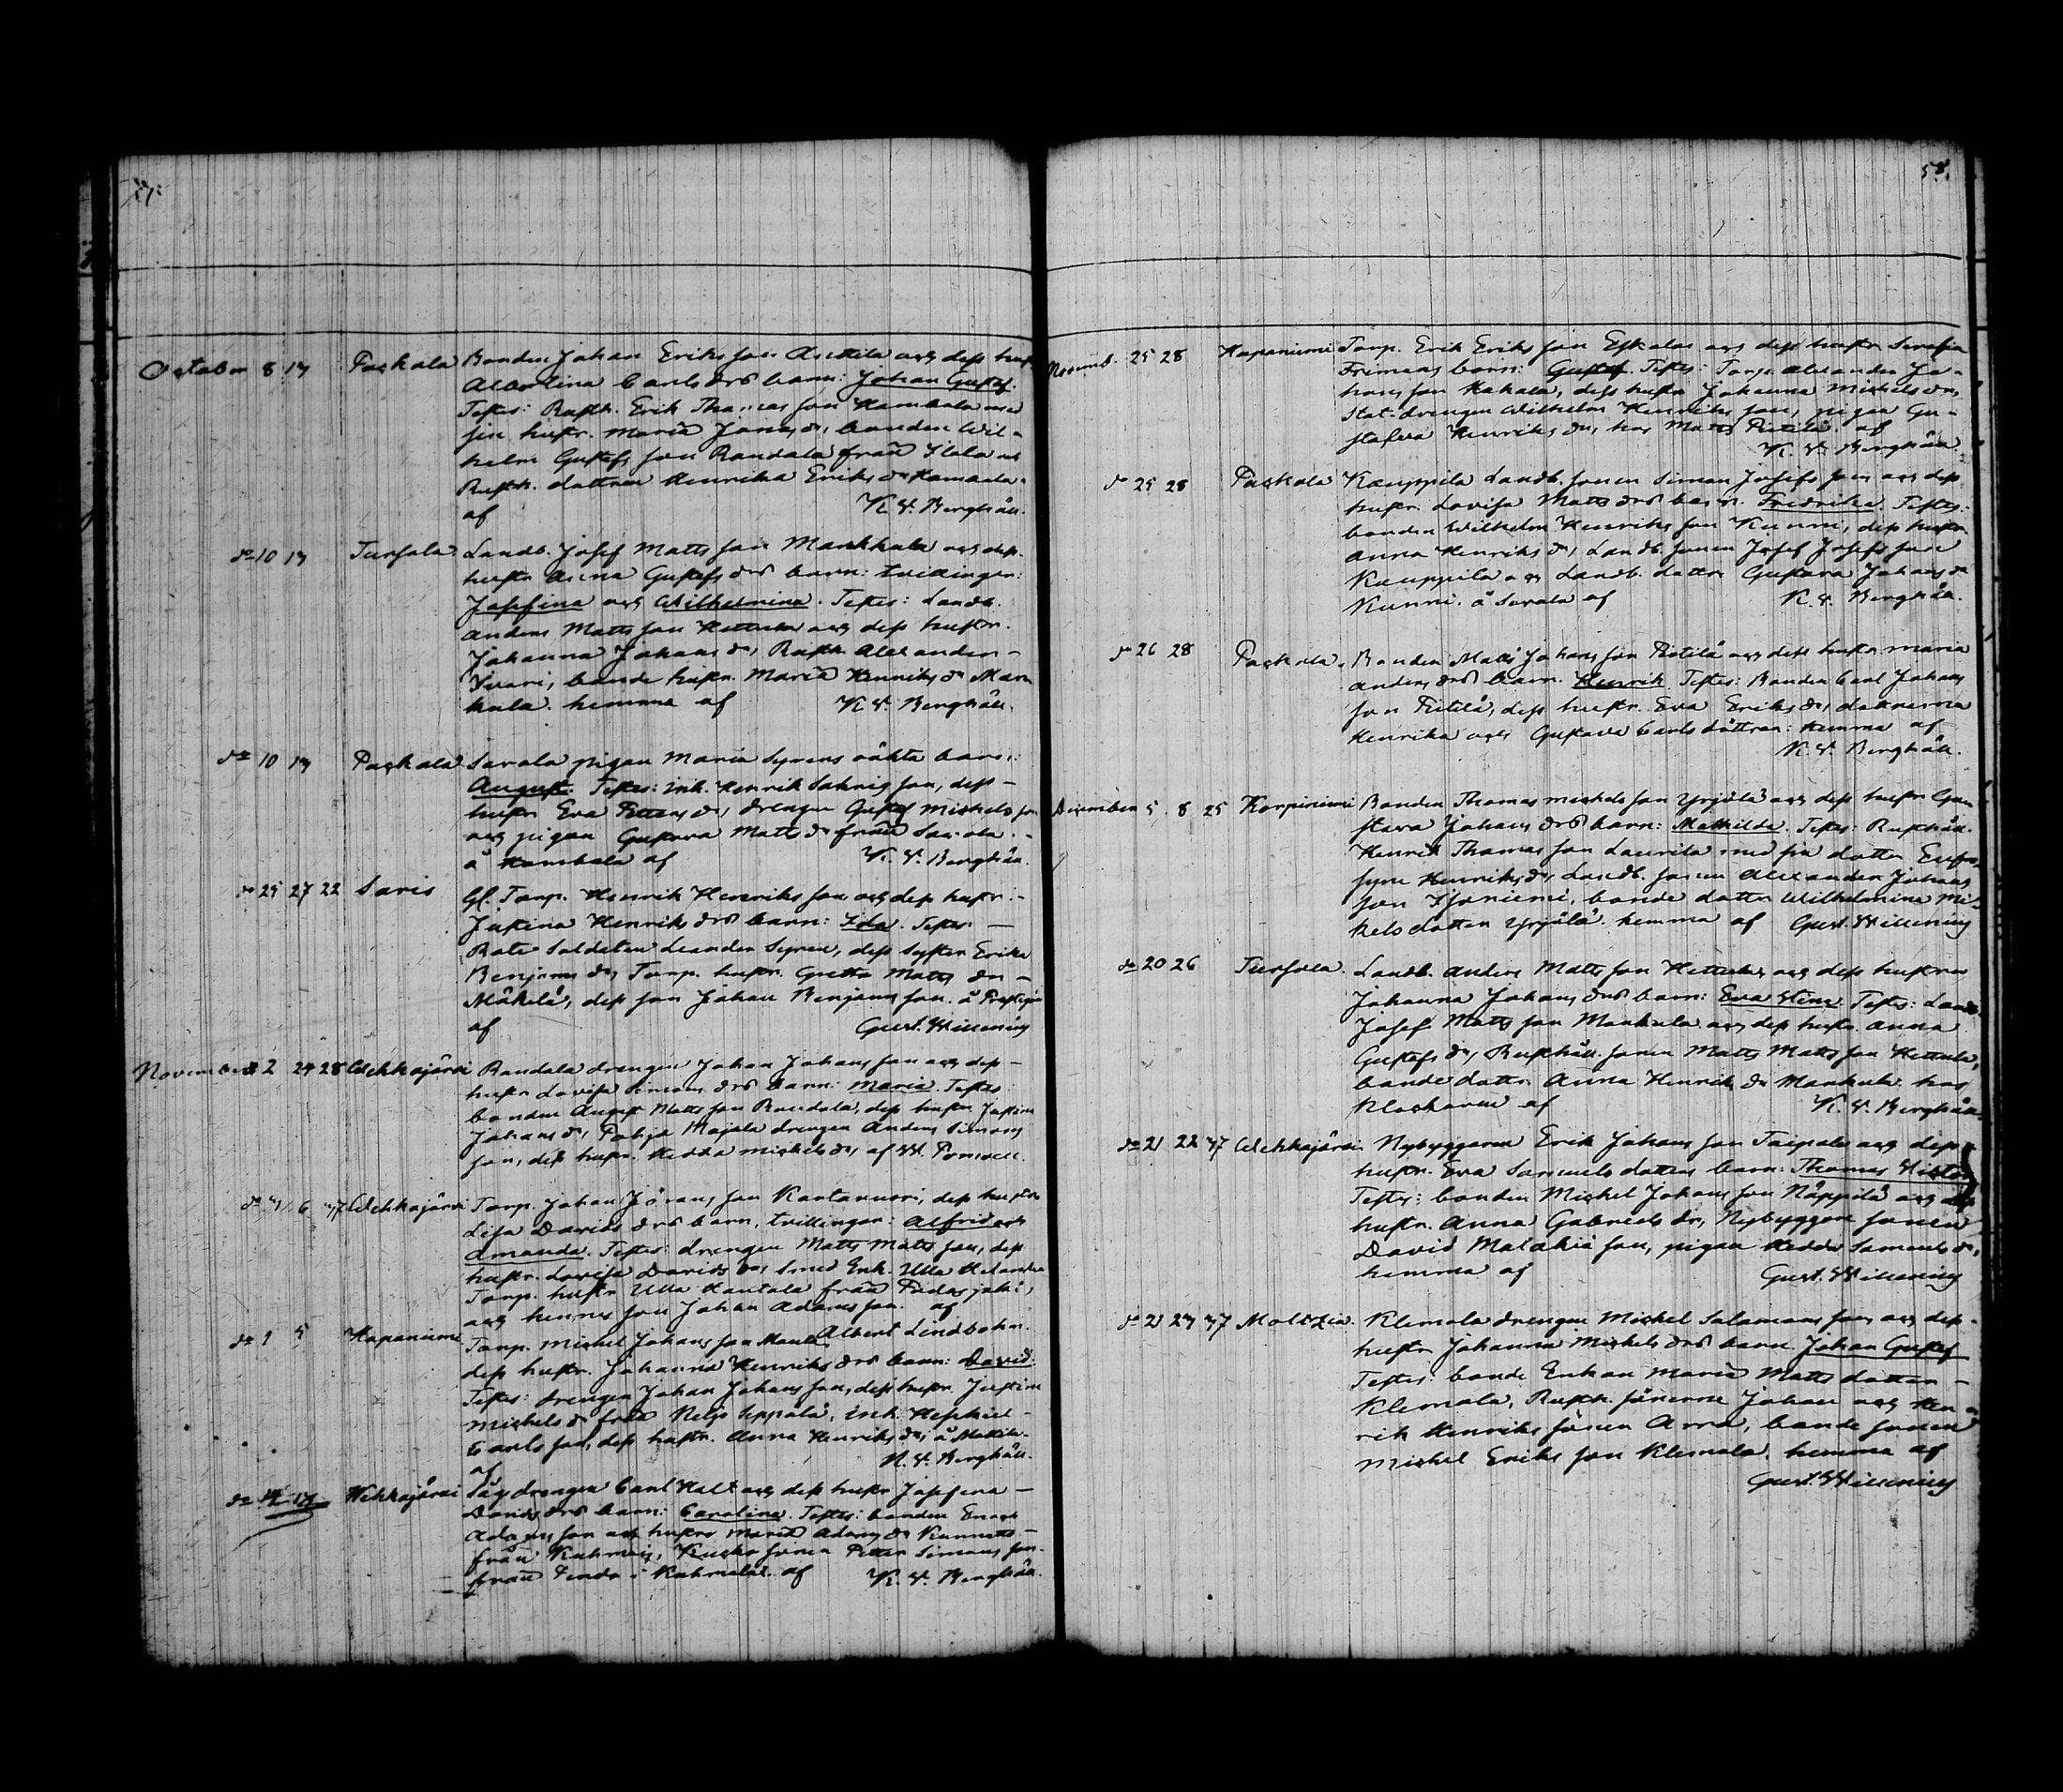 58.
October 8 14 Paskala Bonden Johan Eriks son Anttila och dess hustr
Albertina Carls drs barn: Johan Gustaf.
Testes: Rusth. Erik Thomas son Hambala med
sin hustr. Maria Johans dr, bonden Wil-
helm Gustafs son Randala från Ilola och
Rusth. dottren Henrika Eriks dr Hamaala.
af K. V. Berghäll.
do 10 14 Tursola Landb. Josef Matts son Markkula och dess
hustr Anna Gustafs drs barn: tvillingar:
Josefina och Wilhelmina. Testes: Landb.
Anders Matts son Hettula och dess hustr.
Johanna Johans dr, Rusth. Alexander
Yvari, bonde hustr. Maria Henriks dr Mar
kula. hemma af K. V. Berghäll.
do 10 14 Paskala Savola pigan Maria Syrens oäkta barn:
August. Testes: Inh. Henrik Sakris son, dess
hustr Eva Petters dr, drengen Gustaf Mickels son
och pigan Gustava Matts dr från Savola.
å Hambala af K. V. Berghäll.
do 25 27 22 Saris Gl. Torp. Henrik Henriks son och dess hustr.
Justina Henriks drs barn: Ida. Testes:
Rote Soldaten Leander Syren, dess syster Erika
Benjams dr, Torp. hustr. Gretha Matts dr
Mäkelä, dess son Johan Benjams son. å Prestgår
af Gust. Willening
November 2 24 28 Wehkajärvi Randala drengen Johan Johans son och dess
hustr Lovisa Simons drs barn: Maria. Testes:
bonden August Matts son Randala, dess hustr. Justina
Johans dr, Pohja Majala drengen Anders Simons
son, dess hustr. Hedda Mickels dr, af W. Ponsell.
do 4 6 47 Wehkajärvi Torp. Johan Jörans son Kantanuori, dess hustru
Lisa Davids drs barn, tvillingar: Alfrid och
Amanda. Testes: drengen Matts Matts son, dess
hustr. Lovisa Davids dr, Smed Enk. Ulla Helander
Torp. hustr Ulla Kantola från
och hennes son Johan Adams son. af
Albert Lindbohm.
do 1 5 Haponiemi Torp. Mickel Johans son
dess hustr. Johanna Henriks drs barn: David.
Testes: drengen Johan Johans son, dess hustr. Justina
Mickels dr från Neljo Seppälä, Inh. Heskiel
Carls son, dess hustr. Anna Henriks dr, å Mattila.
af K. V. Berghäll.
do 14 17 Wehkajärvi Såg drengen Carl Halt och dess hustr Josefina
Davids drs barn: Carolina. Testes: bonden Enoch
Adams son och hustru Maria Adams dr Kunnatt
från Kuhmois, Kusko sonen Petter Simons son
från i Kuhmalax. af K. V. Berghäll.
Novemb. 25 28 Haponiemi Torp. Erik Eriks son Eskolas och dess hustr Serafia
Frimans barn: Gustaf. Testes: Torp. Alexander Jo-
hans son Hakala, dess hustr Johanna Mickels dr,
Stat-drengen Wilhelm Henriks son, pigan Gu-
stafva Henriks dr, hos Matts Pietilä. af
K. V. Berghäll.
do 25 28 Paskala Kauppila Landb. sonen Simon Josefs son och dess
hustr. Lovisa Matts drs barn. Fredrika. Testes:
bonden Wilhelm Henriks son Kunni, dess hustr
Anna Henriks dr, Landb. sonen Josef Josefs son
Kauppila och Landb. dottr Gustava Johans dr
Kunni. å Savola af K. V. Berghäll.
do 26 28 Paskala. Bonden Matts Johans son Pietilä och dess hustr Maria
Anders drs barn. Henrik. Testes: Bonden Carl Johans
son Pietilä, dess hustr. Eva Eriks dr, döttrarna
Henrika och Gustava Carls döttrar: hemma af
K. V. Berghäll.
December 5. 8 25 Korpiniemi Bonden Thomas Mickels son Yrjölä och dess hustr Gu
stava Johans drs barn: Mathilda. Testes: Rusthåll.
Henrik Thomas son Laurila med sin dotter Eufro
syne Henriks dr, Landb. sonen Alexander Johans
son Isoniemi, bonde dotter Wilhelmina Mi-
kels dotter Yrjölä. hemma af Gust. Willening
do 20 26 Tursola Landb. Anders Matts son Hettula och dess hustru
Johanna Johans drs barn: Eva Stina. Testes: Landb.
Josef Matts son Markula och dess hustr. Anna
Gustafs dr, Rusthåll. sonen Matts Matts son Hettula,
bonde dottr. Anna Henriks dr Markula. hos
Klockaren af K. V. Berghäll.
do 21 22 47 Wehkajärvi Nybyggaren Erik Johans son Taipale och dess
hustr. Eva Samuels dotters barn: Thomas Victor
Testes: bonden Mickel Johans son Näppilä och dess
hustr. Anna Gabriels dr, Nybyggare sonen
David Malakia son, pigan Hedda Samuels dr,
hemma af Gust. Willening
do 21 24 47 Moltzia. Klemola drengen Mickel Salamons son och dess
hustr Johanna Mickels drs barn Johan Gustaf
Testes: bonde Enkan Maria Matts dotter
Klemola, Rusth. sönerne Johan och Hen
rik Henriks söner Arra, bonde sonen
Mickel Eriks son Klemola. hemma af
Gust. Willening